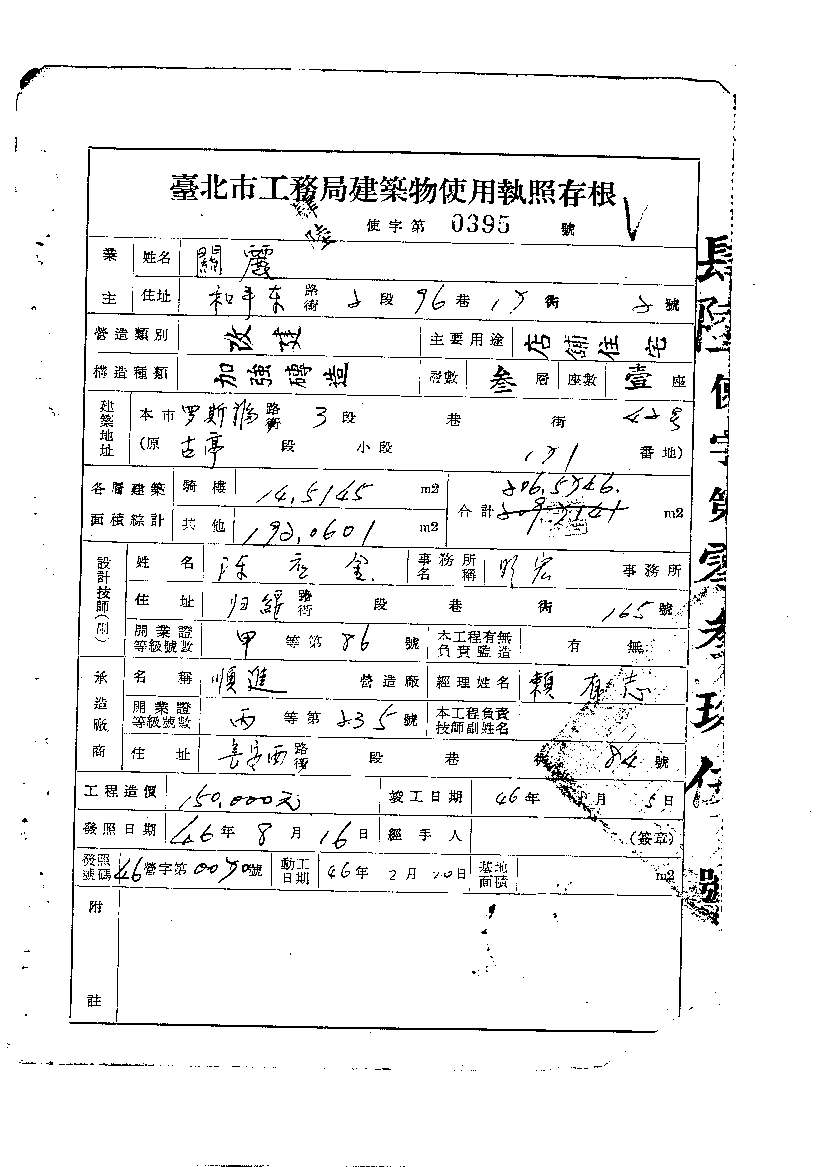 臺北市工務局建築物使用執照存根
肆陸
使字第 0395 號
業主 姓名 關麗
住址 和平東 路街 2 段 96 巷 17 街 2 號
營造類別 改建 主要用途 店舖住宅
構造種類 加強磚造 層數 叁 層 座數 壹 座
建築地址 本市 罗斯福 路街 3 段 巷 街 42号
(原 古亭 段 小段 171 番地)
各層建築面積綜計 騎樓 14,5145 m2 合計 206,5746. m2
其他 192,0601 m2
設計技師(開) 姓名 陳 金 事務所名稱 明宏 事務所
住址 归綏 路街 段 巷 街 165 號
開業證等級號數 甲 等第 86 號 本工程有無負責監造 有 無
承造廠商 名稱 順進 營造廠 經理姓名 賴有志
開業證等級號數 丙 等第 235 號 本工程負責技師副姓名
住址 長安西 路街 段 巷 84 號
工程造價 150,000元 竣工日期 46年 月 5日
發照日期 46年 8月 16日 經手人 (簽章)
發照號碼 46營字第0070號 動工日期 46年 2月 20日 基地面積 m2
附註
肆陸使字第零叁玖伍號